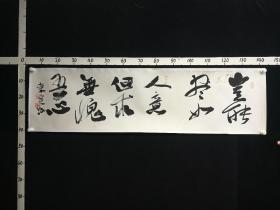 10 20 30 40 50 60 70 80 90 100 110 120 130 140 150
豈能
尽如
人意
但求
無愧
吾心